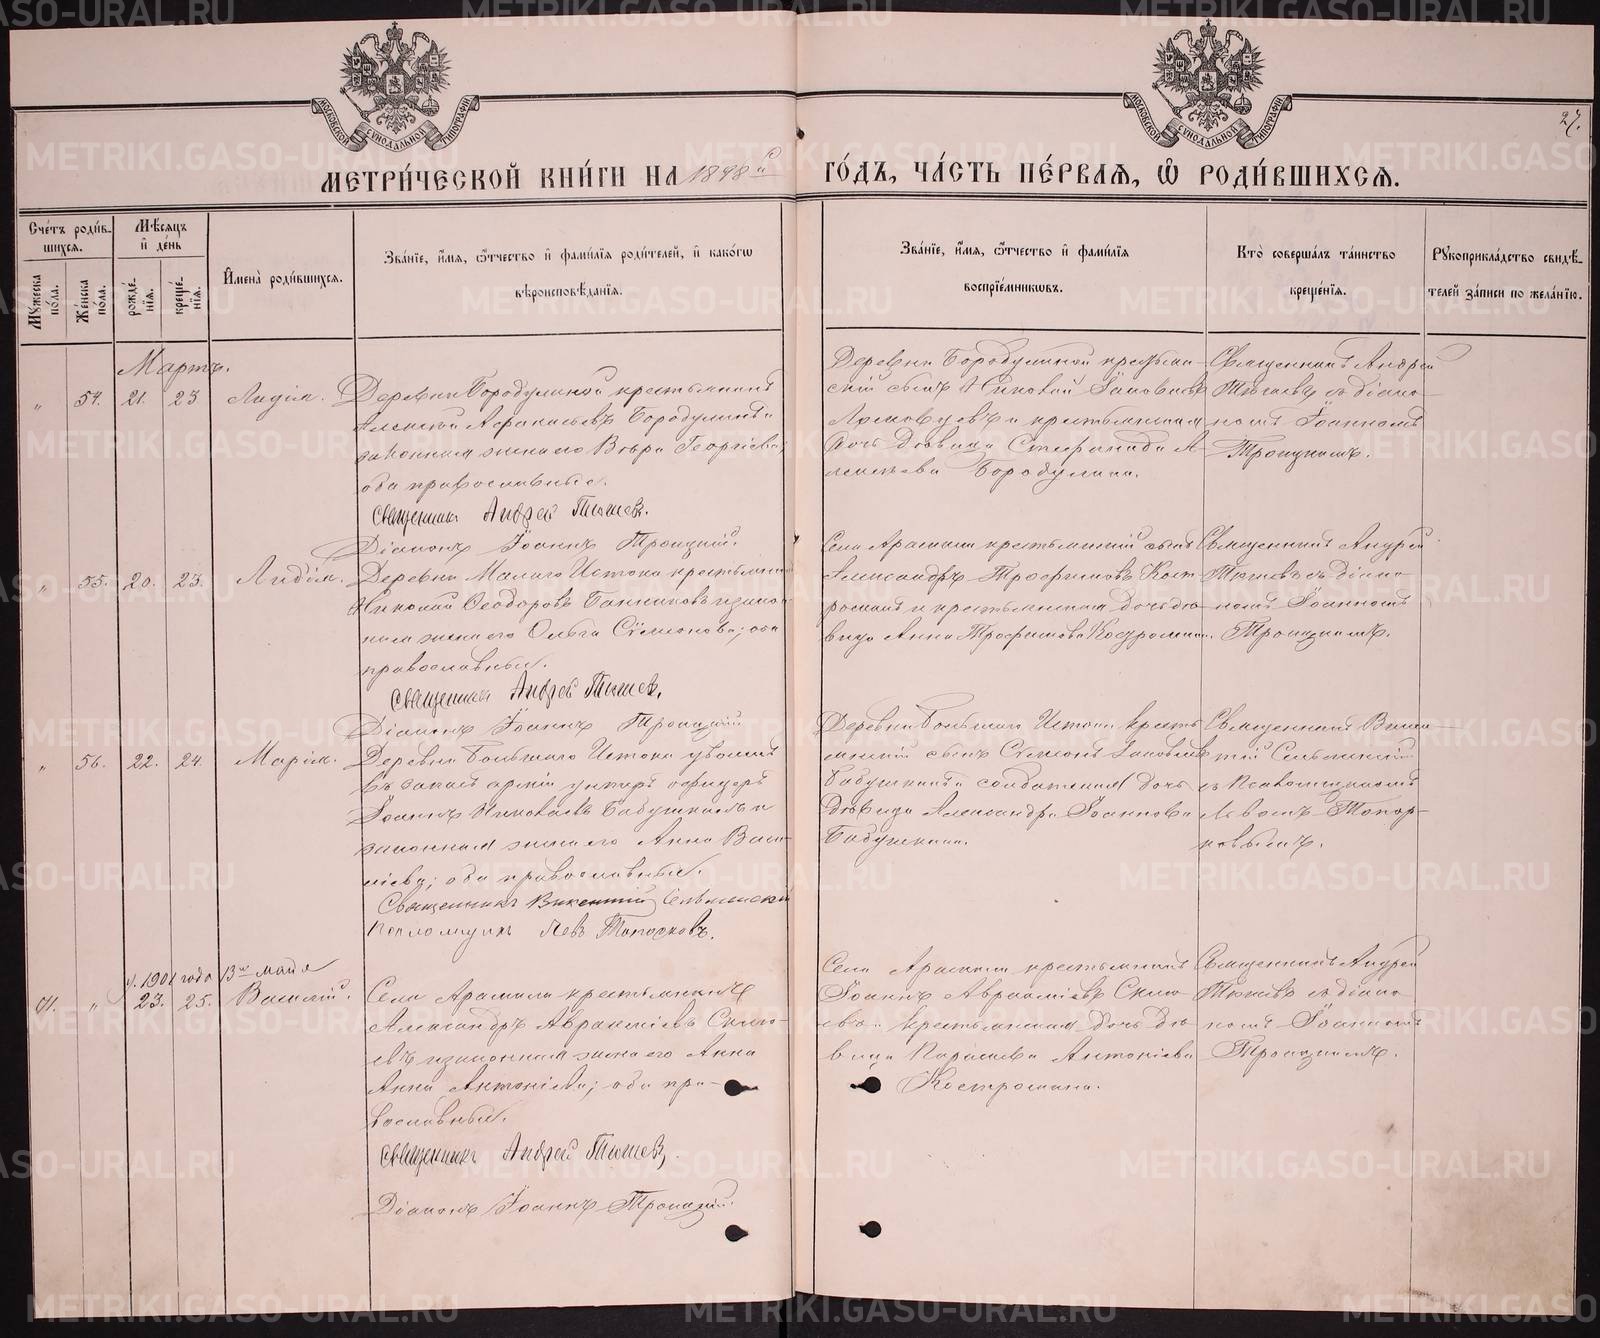 27.
МЕТРИ́ЧЕСКОЙ КНИ́ГИ НА 1898 ГО́ДЪ, ЧА́СТЬ ПЕ́РВАѦ, Ѽ РОДИ́ВШИХСѦ.
Сче́тъ роди́вшихсѧ.
Мꙋжеска по́ла.
Же́нска по́ла.
Мѣ́сѧцъ и҆ де́нь
рожде́нїѧ.
креще́нїѧ.
И҆мена̀ роди́вшихсѧ.
Зва́нїе, и҆́мѧ, ѻ҆́тчество и҆ фами́лїѧ роди́телей, и҆ како́гѡ
вѣроисповѣ́данїѧ.
Зва́нїе, и҆́мѧ, ѻ҆́тчество и҆ фами́лїѧ
воспрїе́мникѡвъ.
Кто̀ соверша́лъ та́инство
креще́нїѧ.
Рꙋкоприкла́дство свидѣ́телей за́писи по жела́нїю.
Мартъ.
" 54. 21. 23. Лидія.
Деревни Бородулиной крестьянинъ
Алексѣй Афанасьевъ Бородулинъ и
законная жена его Вѣра Георгіева;
оба православные.
Священникъ Андрей Тюшев.
Діаконъ Іоаннъ Троицкій.
Деревни Бородулиной крестьянскій сынъ Николай Іаковлевъ
и крестьянская
дочь дѣвица Стефанида Алексѣева Бородулина.
Священникъ Андрей
Тюшевъ съ діакономъ Іоанномъ
Троицкимъ.
" 55. 20. 23. Лидія.
Деревни Малаго Истока крестьянинъ
Николай Ѳеодоровъ Банниковъ и законная жена его Ольга Сѵмеонова; оба
православные.
Священникъ Андрей Тюшев.
Діаконъ Іоаннъ Троицкій
Села Арамили крестьянскій сынъ
Александръ Трофимовъ Костроминъ и крестьянская дочь дѣвица Анна Трофимова Костромина.
Священникъ Андрей
Тюшевъ съ діакономъ Іоанномъ
Троицкимъ.
" 56. 22. 24. Марія.
Деревни Большаго Истока уволенъ
въ запасъ арміи унтеръ офицеръ
Іоаннъ Николаевъ Бабушкинъ и
законная жена его Анна Василіева; оба православные.
Священникъ Викентій Сельменскій
Псаломщикъ Левъ Топорковъ.
Деревни Большаго Истока крестьянскій сынъ Сѵмеонъ Іаковлевъ
Бабушкинъ и солдатская дочь
дѣвица Александра Іоаннова
Бабушкина.
Священникъ Викентій Сельменскій
съ Псаломщикомъ
Львомъ Топорковымъ.
у. 1901 года 13го мая
41. " 23. 25. Василій.
Села Арамили крестьянинъ
Александръ Авраамievъ
и законная жена его Анна
Анна Антоніева; оба православные.
Священникъ Андрей Тюшев.
Діаконъ Іоаннъ Троицкій.
Села Арамили крестьянинъ
Іоаннъ Авраамиевъ
крестьянская дочь дѣвица Параскева Антоніева
Костромина.
Священникъ Андрей
Тюшевъ съ діакономъ Іоанномъ
Троицкимъ.
METRIKI.GASO-URAL.RU